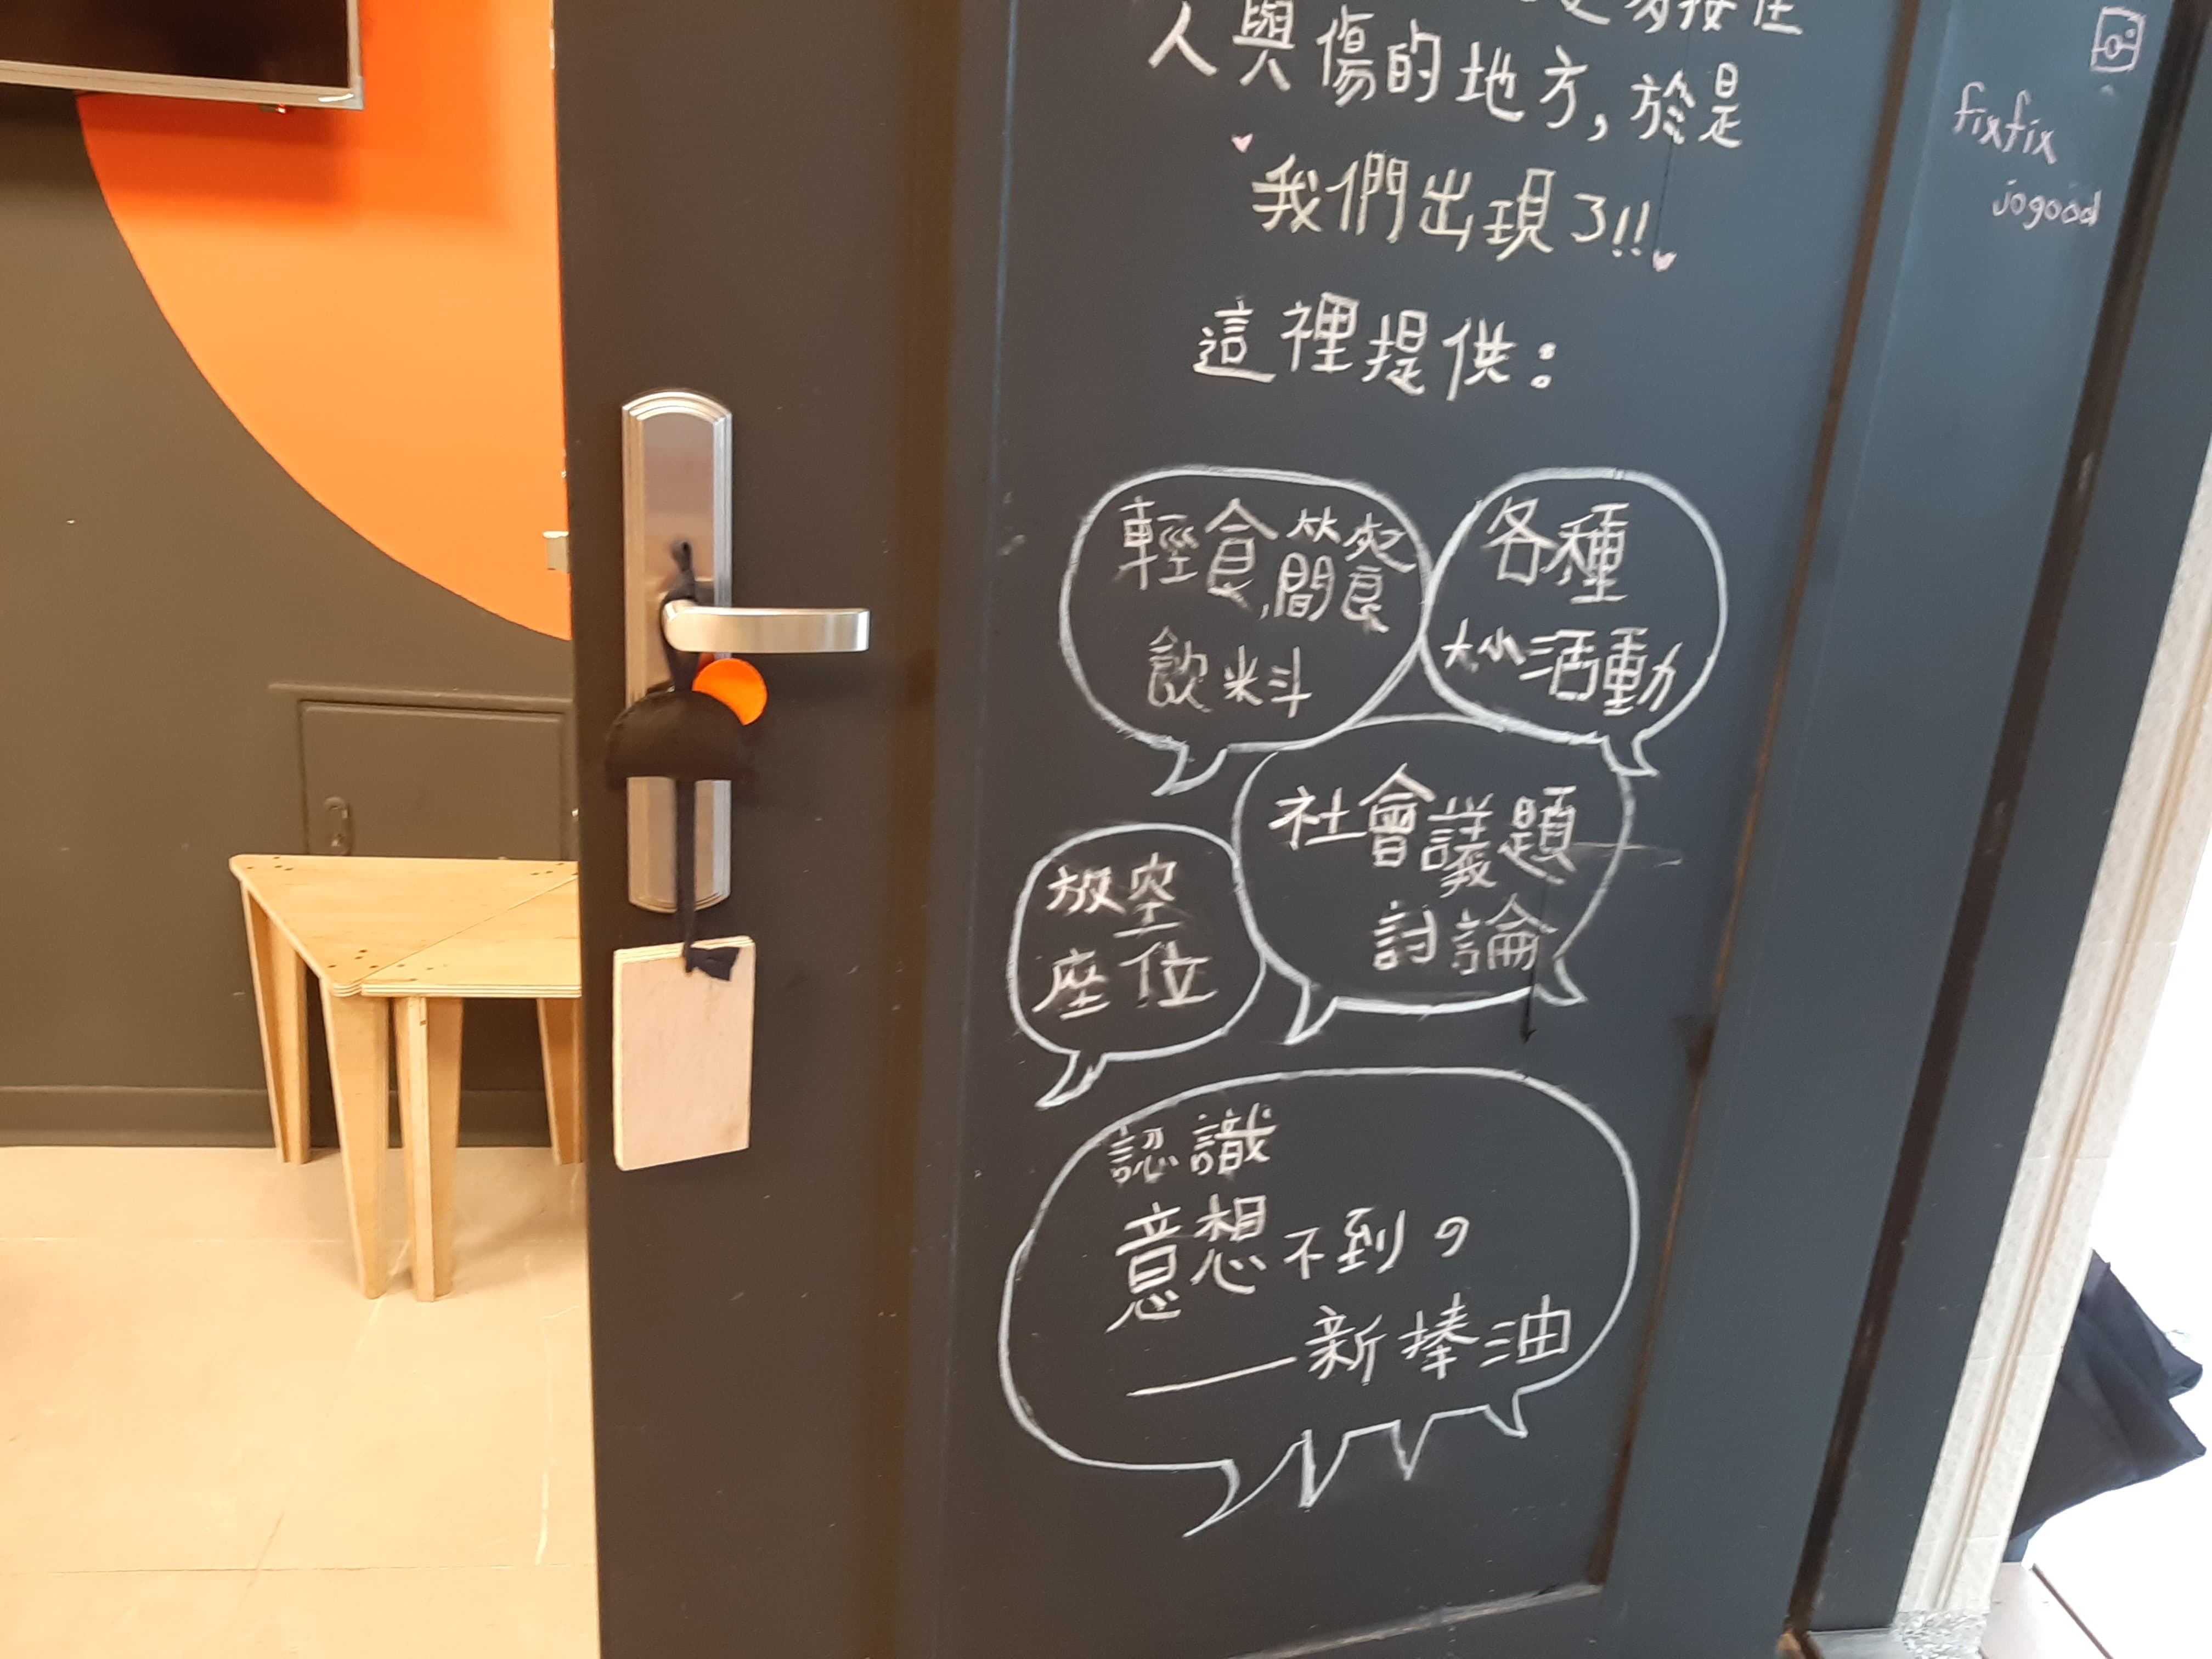 人與傷的地方,於是
我們出現了!!
這裡提供：
輕食,簡餐
飲料
各種
大小活動
社會議題
討論
放空
座位
認識
意想不到の
——新捧油
fixfix
jogood